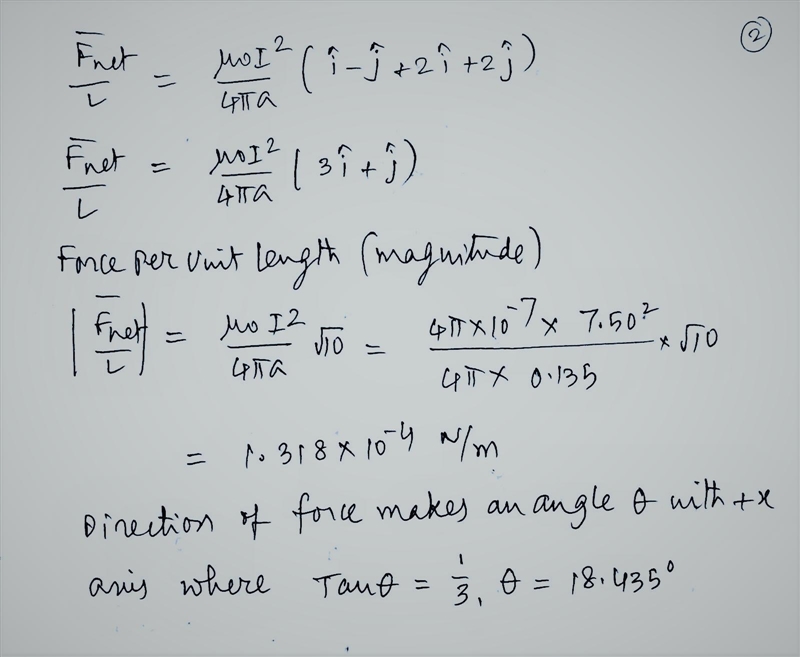 ②
F̅net/L = μ0I²/4πa (î - ĵ + 2î + 2ĵ)
F̅net/L = μ0I²/4πa (3î + ĵ)
Force per unit length (magnitude)
|F̅net/L| = μ0I²/4πa √10 = 4π×10⁻⁷ × 7.50²/4π × 0.135 × √10
= 1.318 × 10⁻⁴ N/m
Direction of force makes an angle θ with +x
axis where Tanθ = 1/3, θ = 18.435°